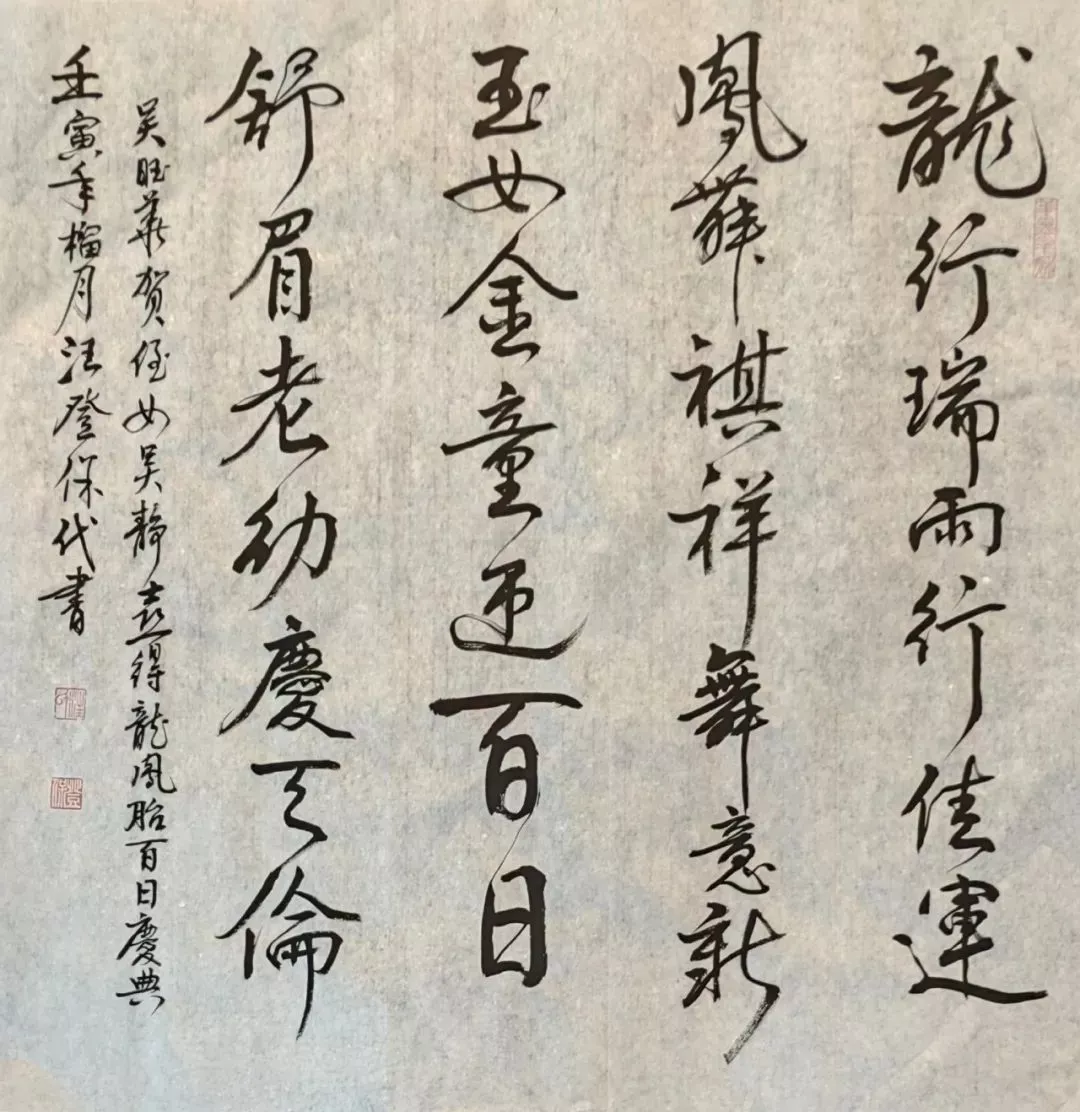 龍行瑞雨行佳運
鳳舞祺祥舞意新
玉女金童百日
舒眉老幼慶天倫
吴旺華贺侄女吴靜喜得龍鳳胎百日慶典
壬寅年榴月汪登保代書